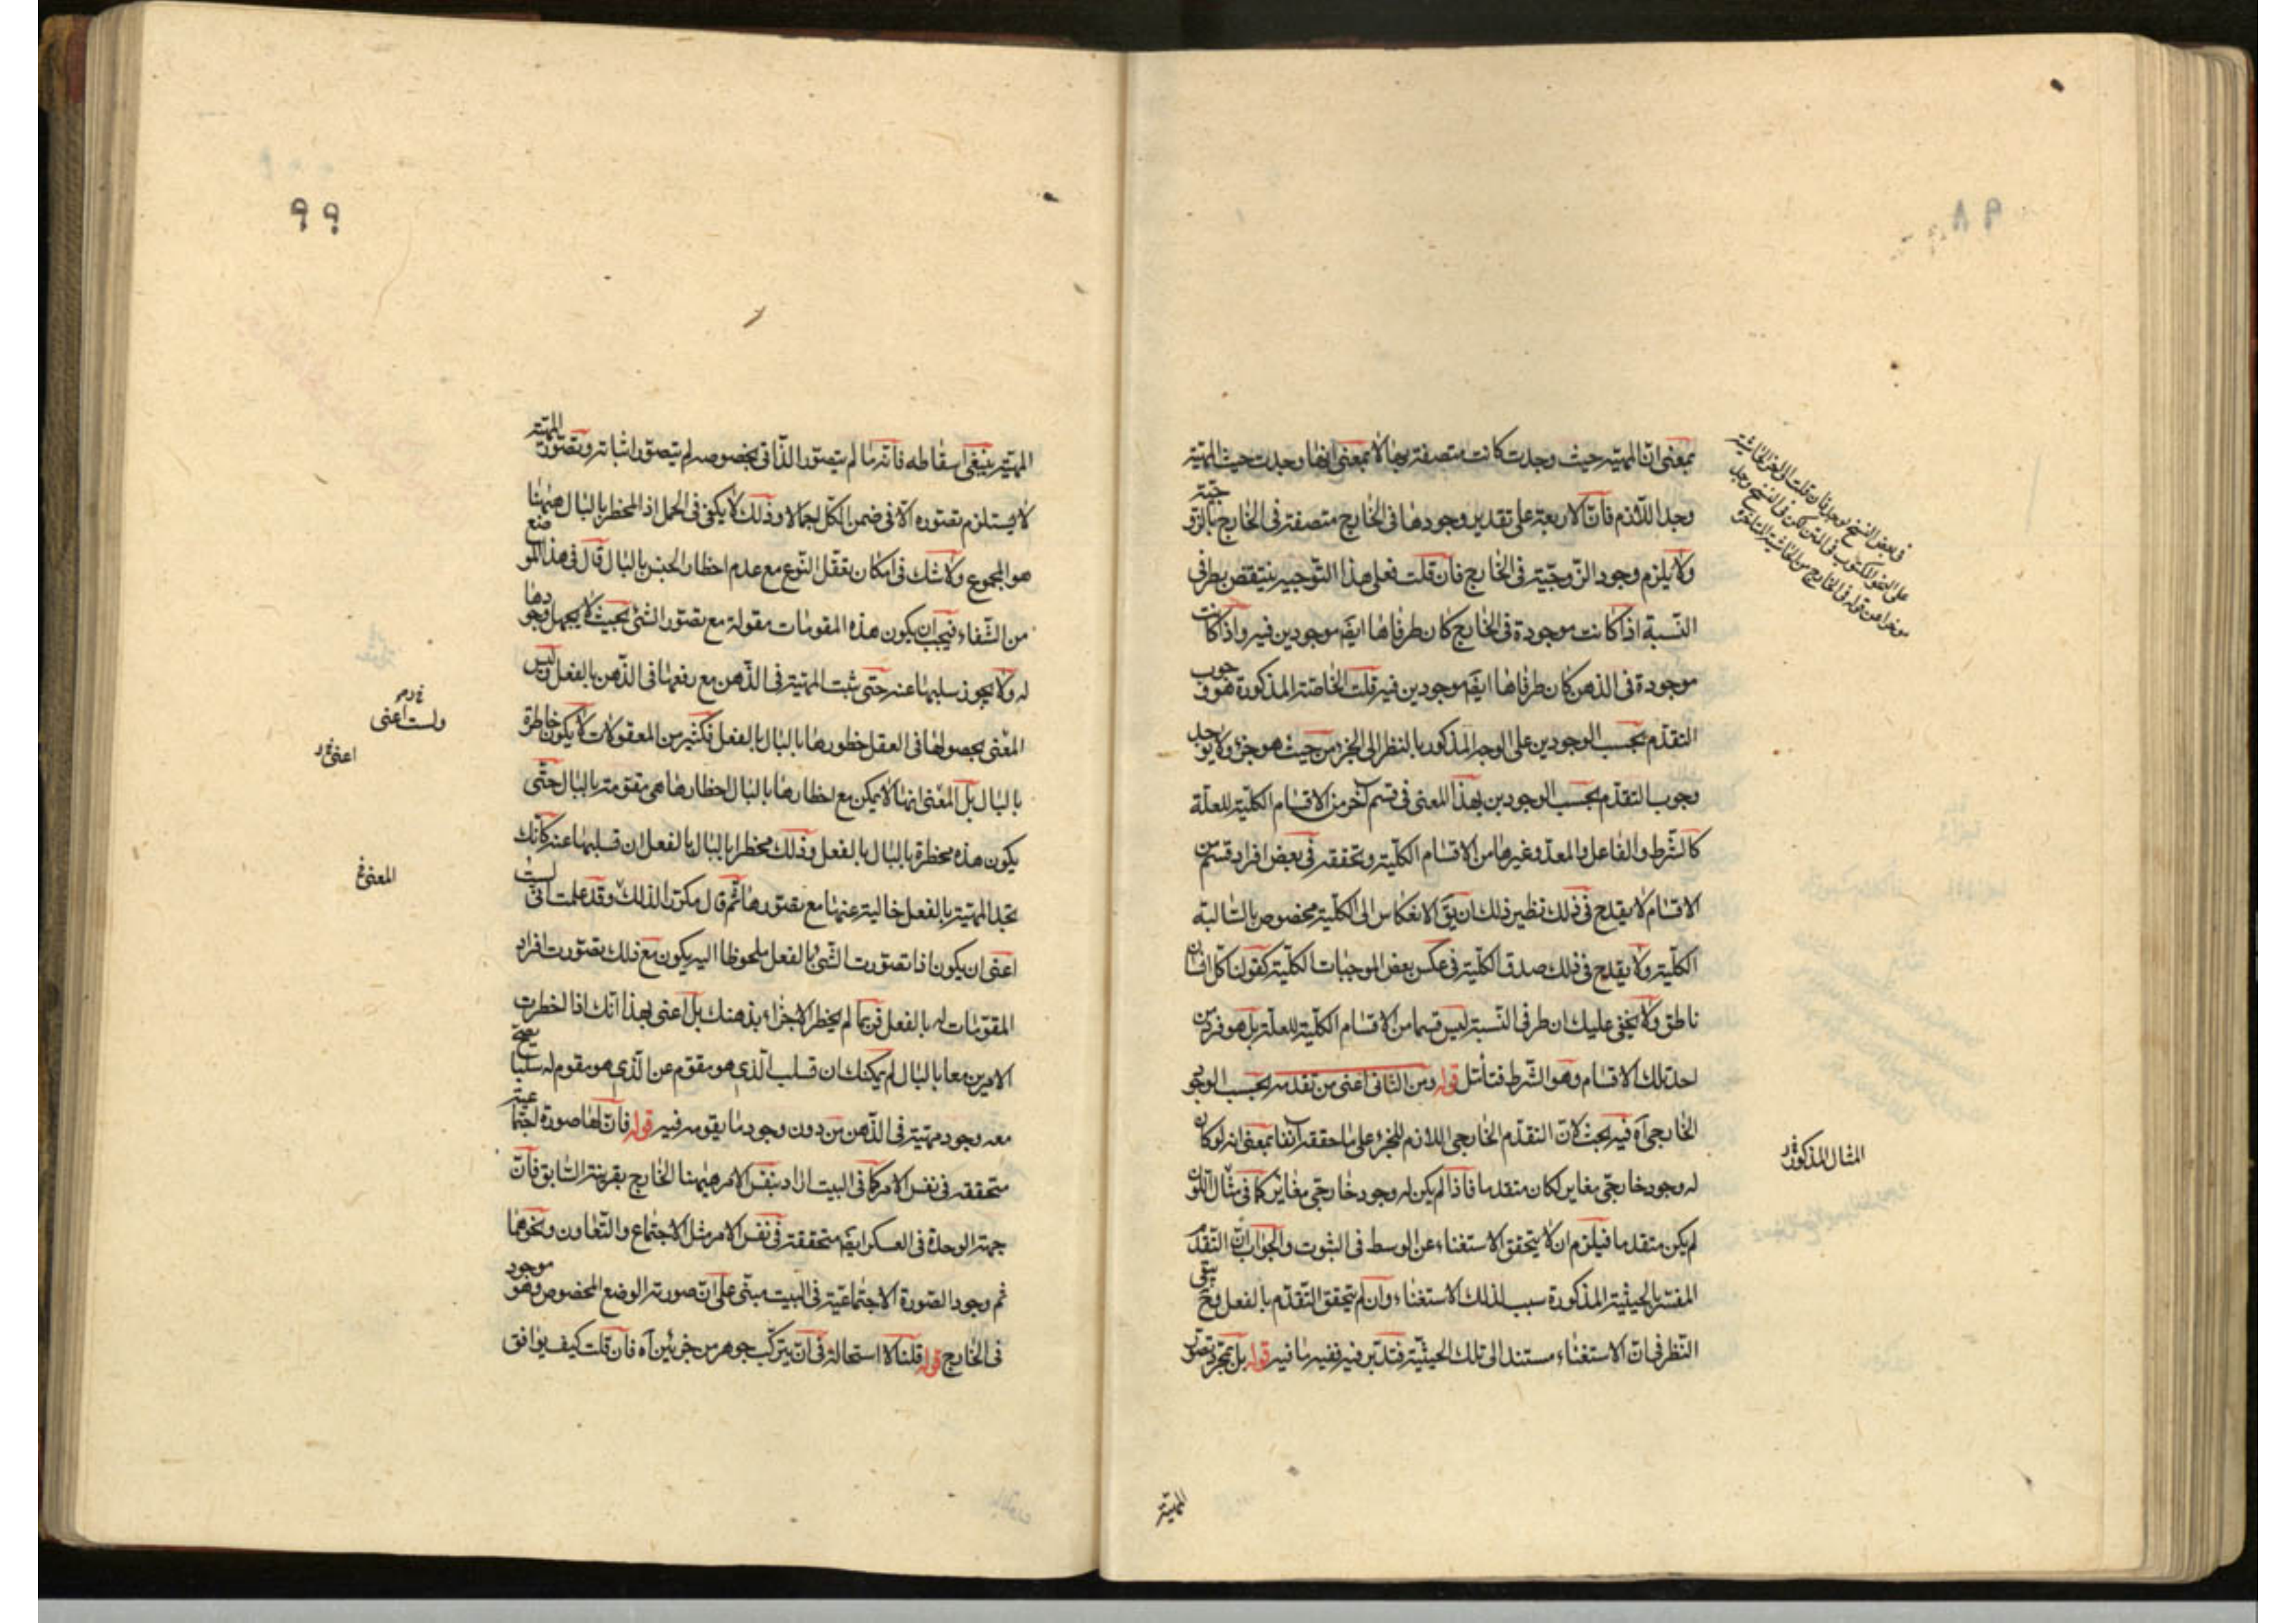 بمعنى ان المهيته حيث وجدت كانت متصفة بها لا بمعنى انها وجدت حيث المهيته
وجد اللازم فان الاربعة على تقدير وجودها فى الخارج متصفة فى الخارج بالزوجيته
ولا يلزم وجود الزوجيته فى الخارج فان قلت فعلى هذا التوجيه ينتقض بطرفى
النسبة اذا كانت موجودة فى الخارج كان طرفاها ايضَ موجودين فيه واذا كانت
موجودة فى الذهن كان طرفاها ايضَ موجودين فيه قلت الخاصة المذكورة هو وجوب
التقدم بحسب الوجودين على الوجه المذكور بالنظر الى الجزء من حيث هو جزء ولا يوجد
وجوب التقدم بحسب الوجودين بهذا المعنى فى قسم آخر من الاقسام الكلية للعلة
كالشرط والفاعل والمعد وغيرها من الاقسام الكلية وتحققه فى بعض افراد قسم من
الاقسام لا يقدح فى ذلك نظير ذلك ان يقَ الانعكاس الى الكلية مخصوص بالسالبة
الكلية ولا يقدح فى ذلك صدق الكلية فى عكس بعض الموجبات الكلية كقولنا كل انسان
ناطق ولا يخفى عليك ان طرفى النسبة ليس قسما من الاقسام الكلية للعلة بل هو فرد من
احد تلك الاقسام وهو الشرط فتامل قوله ومن الثانى اعنى من تقدمه بحسب الوجود
الخارجى آه فيه بحث لان التقدم الخارجى اللازم للجزء على ما حققه آنفا بمعنى انه لو كان
له وجود خارجى مغاير لكان متقدما فاذا لم يكن له وجود خارجى مغاير كما فى مثال اللون
لم يكن متقدما فيلزم ان لا يتحقق الاستغناء عن الوسط فى الثبوت والجواب ان التقدم
المفسر بالحيثية المذكورة سبب لذلك الاستغناء وان لم يتحقق التقدم بالفعل فح يبقى
النظر فى ان الاستغناء مستند الى تلك الحيثية فتدبر فيه ففيه ما فيه قوله بل بمجرد تصور
فى بعض النسخ
المثال المذكور
المهيته
٩٨
٩٩
المهيته ينبغى اسقاطه فانه ما لم يتصور الذاتى بخصوصه لم يتصور اثباته وتصور المهيته
لا يستلزم تصوره الا فى ضمن الكل اجمالا وذلك لا يكفى فى الحمل اذ المخطر بالبال ههنا
هو المجموع ولا شك فى امكان تعقل النوع مع عدم اخطار الجنس بالبال قال فى هذا الموضع
من الشفاء فيجب ان يكون هذه المقومات مقولة مع تصور الشئ بحيث لا يجهل وجودها
له ولا يجوز سلبها عنه حتى يثبت المهيته فى الذهن مع رفعها فى الذهن بالفعل وليس
المعنى بحصولها فى العقل خطورها بالبال بالفعل فكثير من المعقولات لا يكون خاطرة
بالبال بل المعنى انها لا يمكن مع اخطارها بالبال اخطار ما هى مقومة بالبال حتى
يكون هذه مخطرة بالبال بالفعل وذلك مخطرا بالبال بالفعل ان تسلبها عنه كانك
تجد المهيته بالفعل خالية عنها مع تصورها ثم قال مكررا لذلك وقد علمت انى لست
اعنى ان يكون اذا تصورت الشئ بالفعل ملحوظا اليه يكون مع ذلك تصورت افراد
المقومات له بالفعل فربما لم يخطر الاجزاء بذهنك بل اعنى بهذا انك اذا اخطرت
الامرين معا بالبال لم يمكنك ان تسلب الذى هو مقوم عن الذى هو مقوم له سلبا يصح
معه وجود مهيته فى الذهن من دون وجود ما يقومه فيه قوله فان لها صورة اجتماعية
متحققة فى نفس الامر كما فى البيت اراد بنفس الامر ههنا الخارج بقرينة السابق فان
جهة الوحدة فى العسكر ايضَ متحققة فى نفس الامر مثل الاجتماع والتعاون ونحوها
ثم وجود الصورة الاجتماعية فى البيت مبنى على ان صورته الوضع المخصوص وهو موجود
فى الخارج قوله قلنا لا استحالة فى ان يتركب جوهر من جزئين آه فان قلت كيف يوافق
ولست اعنى
اعنى
المعنى